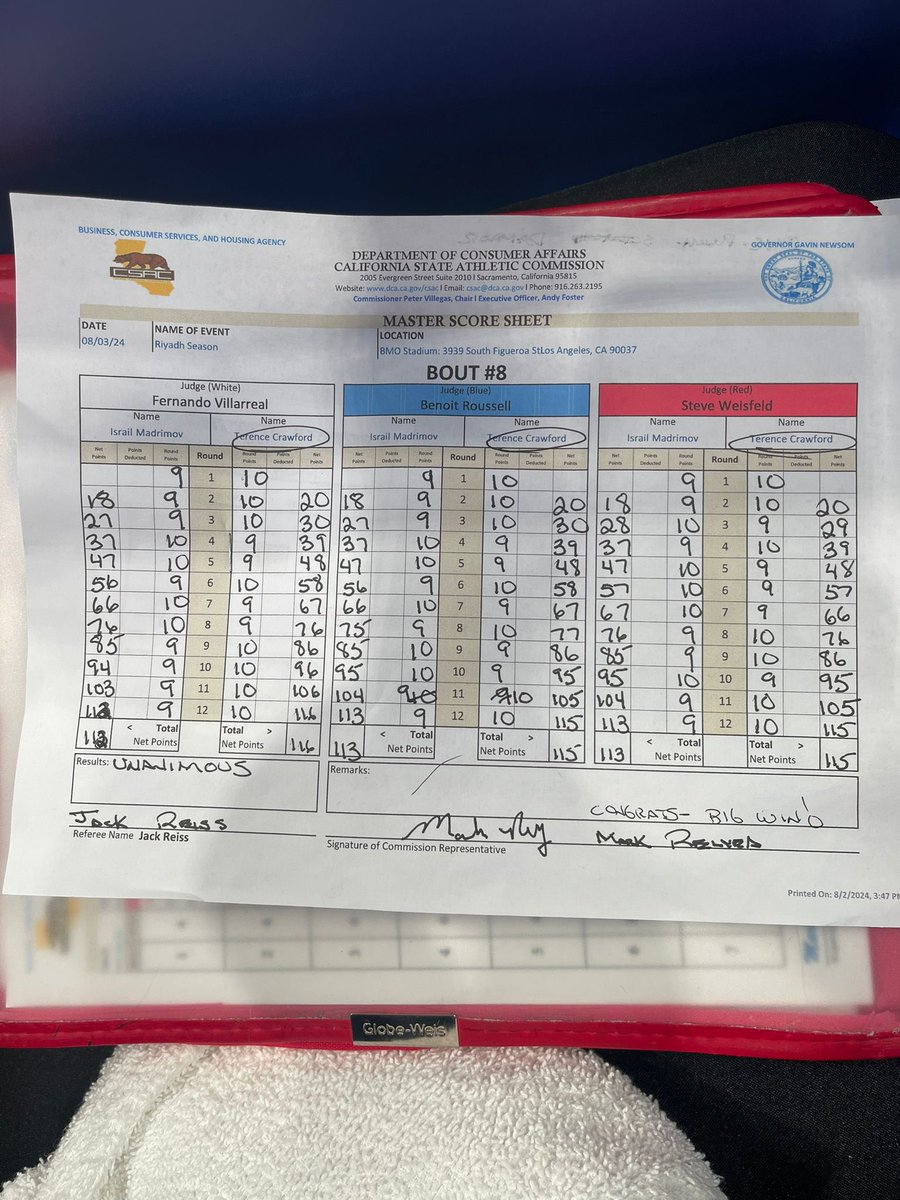 BUSINESS, CONSUMER SERVICES, AND HOUSING AGENCY
GOVERNOR GAVIN NEWSOM
CSAC
DEPARTMENT OF CONSUMER AFFAIRS
CALIFORNIA STATE ATHLETIC COMMISSION
2005 Evergreen Street Suite 2010 | Sacramento, California 95815
Website: www.dca.ca.gov/csac | Email: csac@dca.ca.gov | Phone: 916.263.2195
Commissioner Peter Villegas, Chair | Executive Officer, Andy Foster
MASTER SCORE SHEET
DATE NAME OF EVENT LOCATION
08/03/24 Riyadh Season BMO Stadium: 3939 South Figueroa StLos Angeles, CA 90037
BOUT #8
Judge (White) Judge (Blue) Judge (Red)
Fernando Villarreal Benoit Roussell Steve Weisfeld
Name Name Name Name Name Name
Israil Madrimov Terence Crawford Israil Madrimov Terence Crawford Israil Madrimov Terence Crawford
Net Points Points Deducted Round Points Round Round Points Points Deducted Net Points Net Points Points Deducted Round Points Round Round Points Points Deducted Net Points Net Points Points Deducted Round Points Round Round Points Points Deducted Net Points
9 1 10 9 1 10 9 1 10
18 9 2 10 20 18 9 2 10 20 18 9 2 10 20
27 9 3 10 30 27 9 3 10 30 28 10 3 9 29
37 10 4 9 39 37 10 4 9 39 37 9 4 10 39
47 10 5 9 48 47 10 5 9 48 47 10 5 9 48
56 9 6 10 58 56 9 6 10 58 57 10 6 9 57
66 10 7 9 67 66 10 7 9 67 67 10 7 9 66
76 10 8 9 76 75 9 8 10 77 76 9 8 10 76
85 9 9 10 86 85 10 9 9 86 85 9 9 10 86
94 9 10 10 96 95 10 10 9 95 95 10 10 9 95
103 9 11 10 106 104 9 11 10 105 104 9 11 10 105
112 9 12 10 116 113 9 12 10 115 113 9 12 10 115
112 < Total Net Points Total > Net Points 116 113 < Total Net Points Total > Net Points 115 113 < Total Net Points Total > Net Points 115
Results: UNANIMOUS Remarks:
CONGRATS- BIG WIN!
Jack Reiss
Referee Name Jack Reiss
Signature of Commission Representative
Mark Relyea
Printed On: 8/2/2024, 3:47 P
Globe-Weis